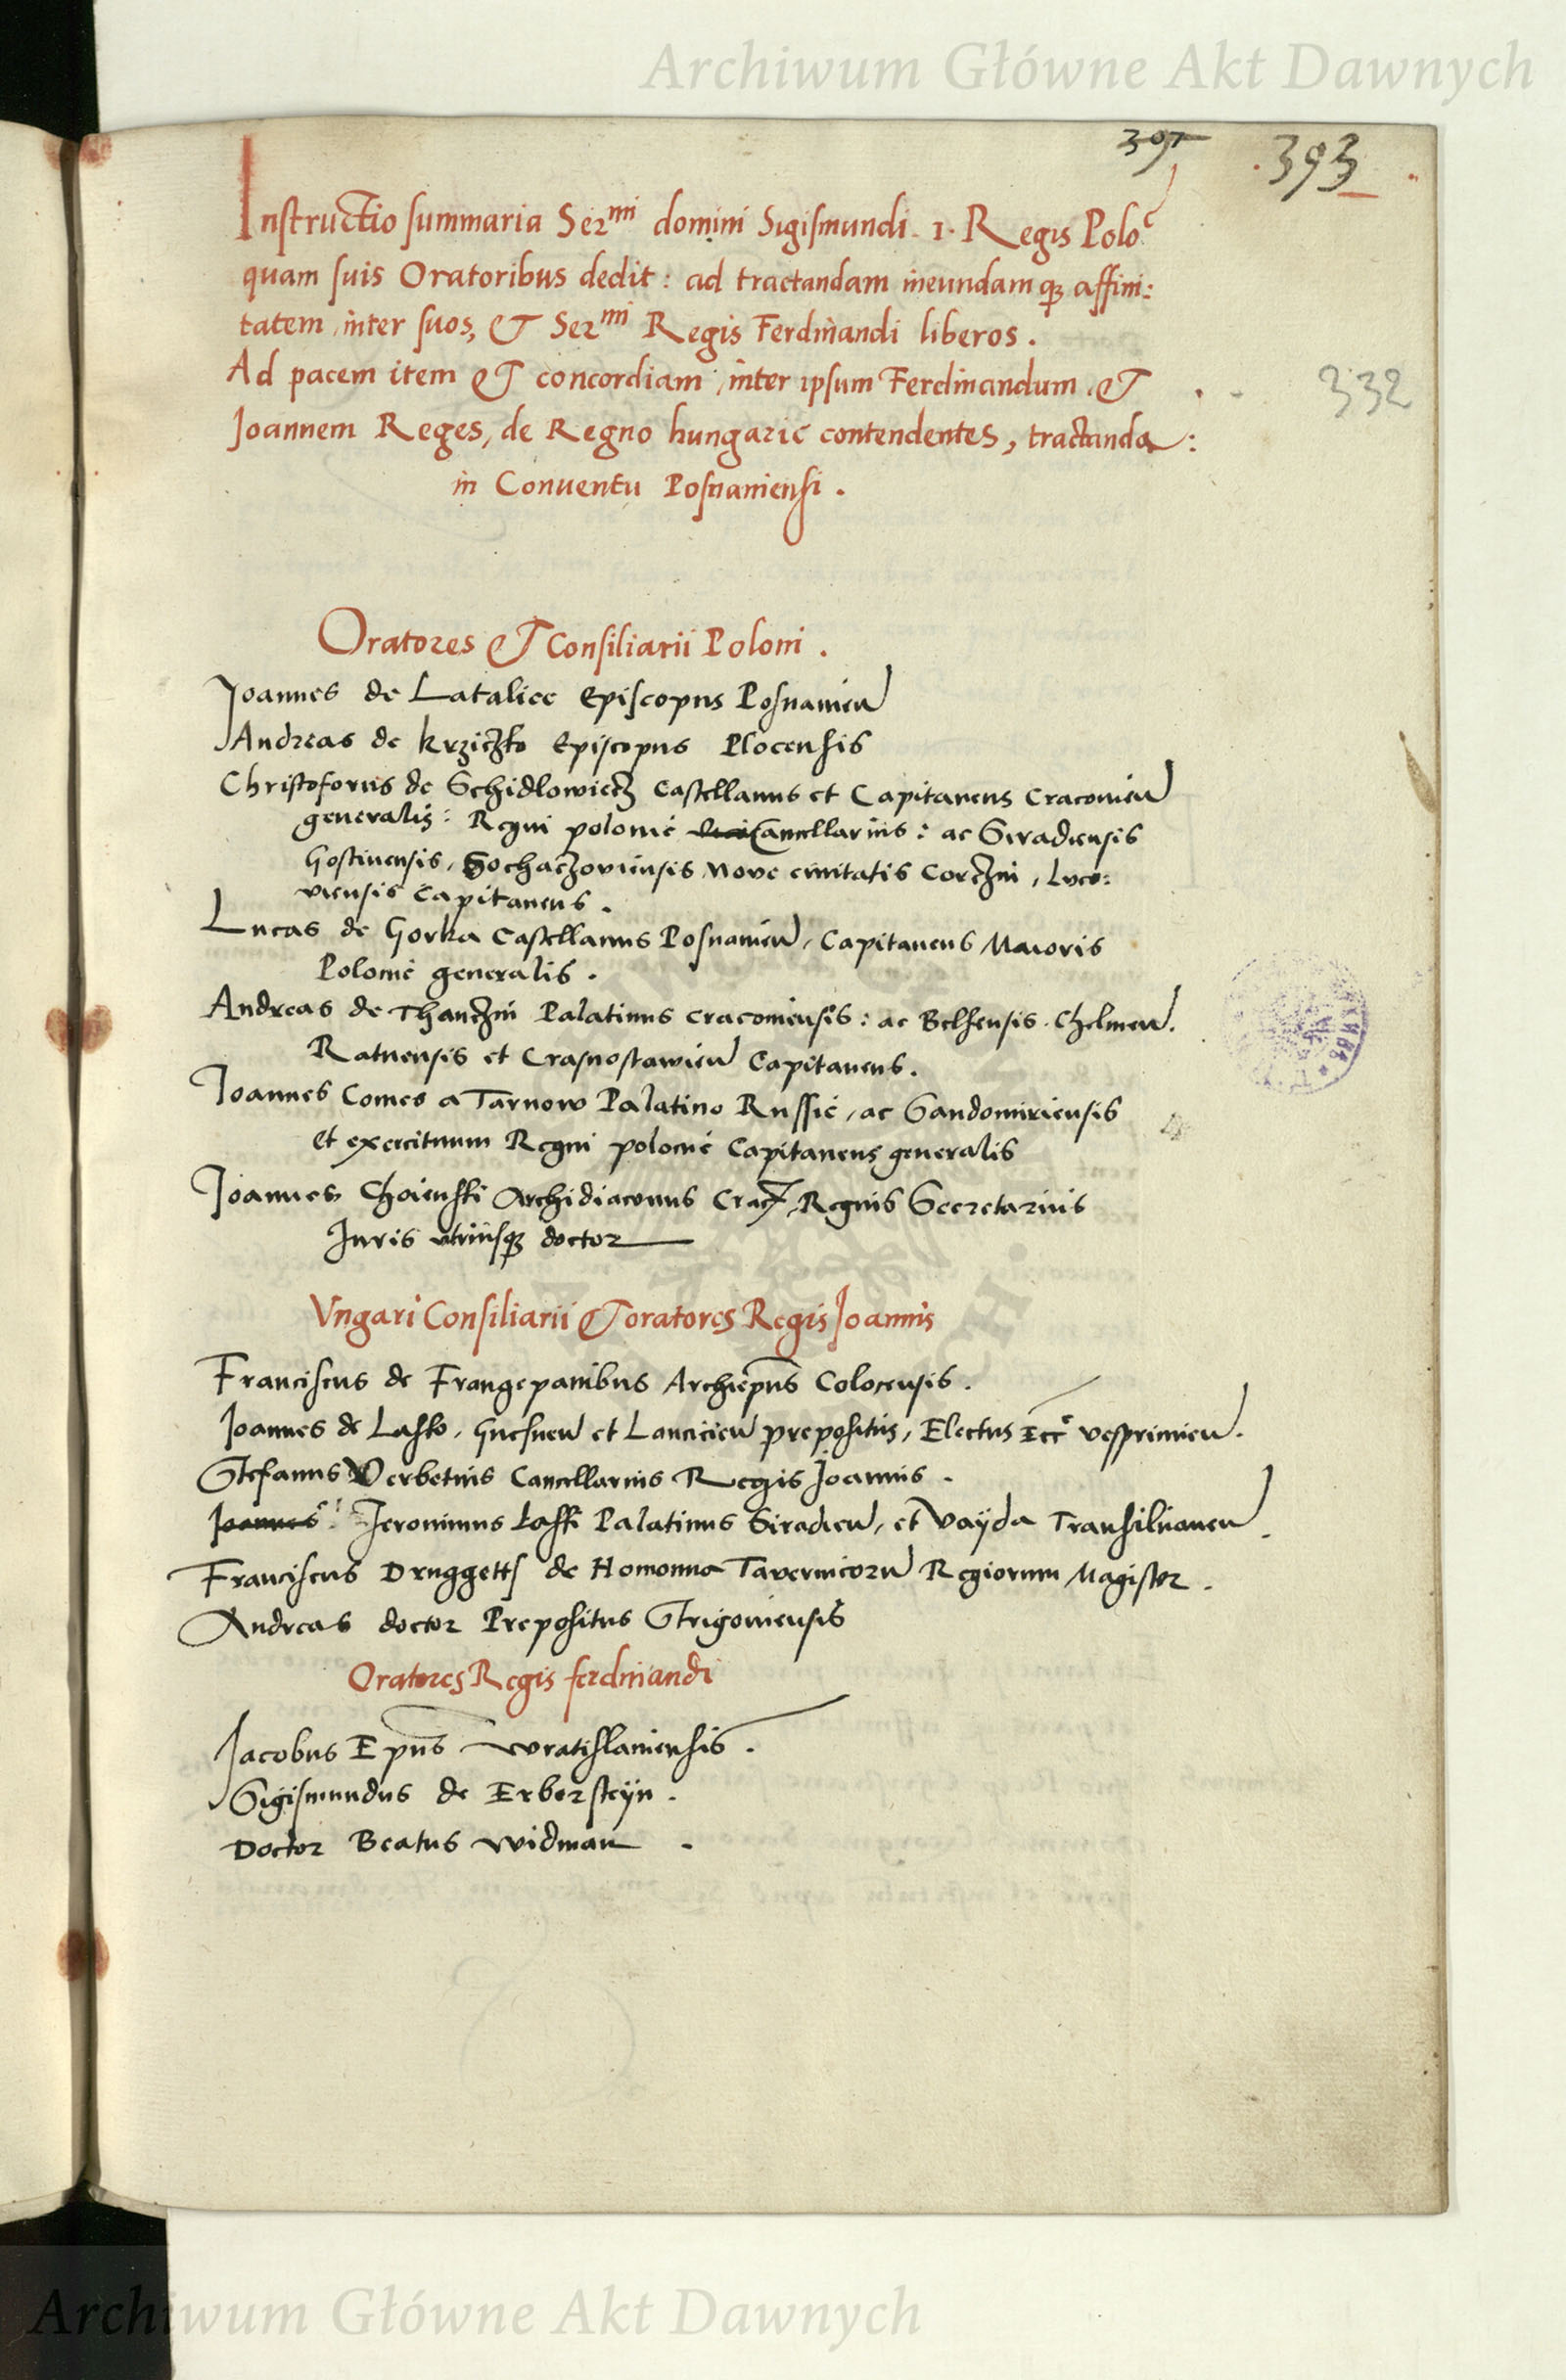 Archiwum Główne Akt Dawnych
397 393
Instructio summaria Ser^mi domini Sigismundi. 1. Regis Polo
quam suis Oratoribus dedit: ad tractandam ineundamq; affini:
tatem, inter suos, et Ser^mi Regis Ferdinandi liberos.
Ad pacem item et concordiam, inter ipsum Ferdinandum et
332
Joannem Reges, de Regno hungarie contendentes, tractanda:
in Conuentu Posnaniensi.
Oratores et Consiliarii Poloni.
Joannes de Latalicc Episcopus Posnanien
Andreas de Krziczko Episcopus Plocensis
Christoforus de Schidlowiecz Castellanus et Capitaneus Cracouien
generalis: Regni polonie Cancellarius: ac Siradiensis
Gostinensis, Sochaczouiensis Noue ciuitatis Corczin, Luco:
uiensis Capitaneus.
Lucas de Gorka Castellanus Posnanien, Capitaneus Maioris
Polonie generalis.
Andreas de Thanczin Palatinus Cracouiensis: ac Belsensis. Chelmen.
Ratnensis et Crasnostawien Capitaneus.
Joannes Comes a Tarnow Palatino Russie, ac Sandomiriensis
et exercituum Regni polonie Capitaneus generalis
Joannes Choienski Archidiaconus Crac, Regius Secretarius
Juris utriusq; doctor
Vngari Consiliarii et oratores Regis Joannis
Franciscus de Frangepanibus Archiepus Colocensis.
Joannes de Lasko, Gnesnen et Lancicien prepositus, Electus Ecc vesprimien.
Stefanus Verbetius Cancellarius Regis Joannis.
Joannes Jeronimus Laski Palatinus Siradien, et Vayda Transiluanen.
Franciscus Druggetts de Homonna Tavernicoru Regiorum Magister.
Andreas doctor Prepositus Strigoniensis
Oratores Regis ferdinandi
Jacobus Epus wratislauiensis.
Sigismundus de Erbersteyn.
Doctor Beatus widman.
Archiwum Główne Akt Dawnych